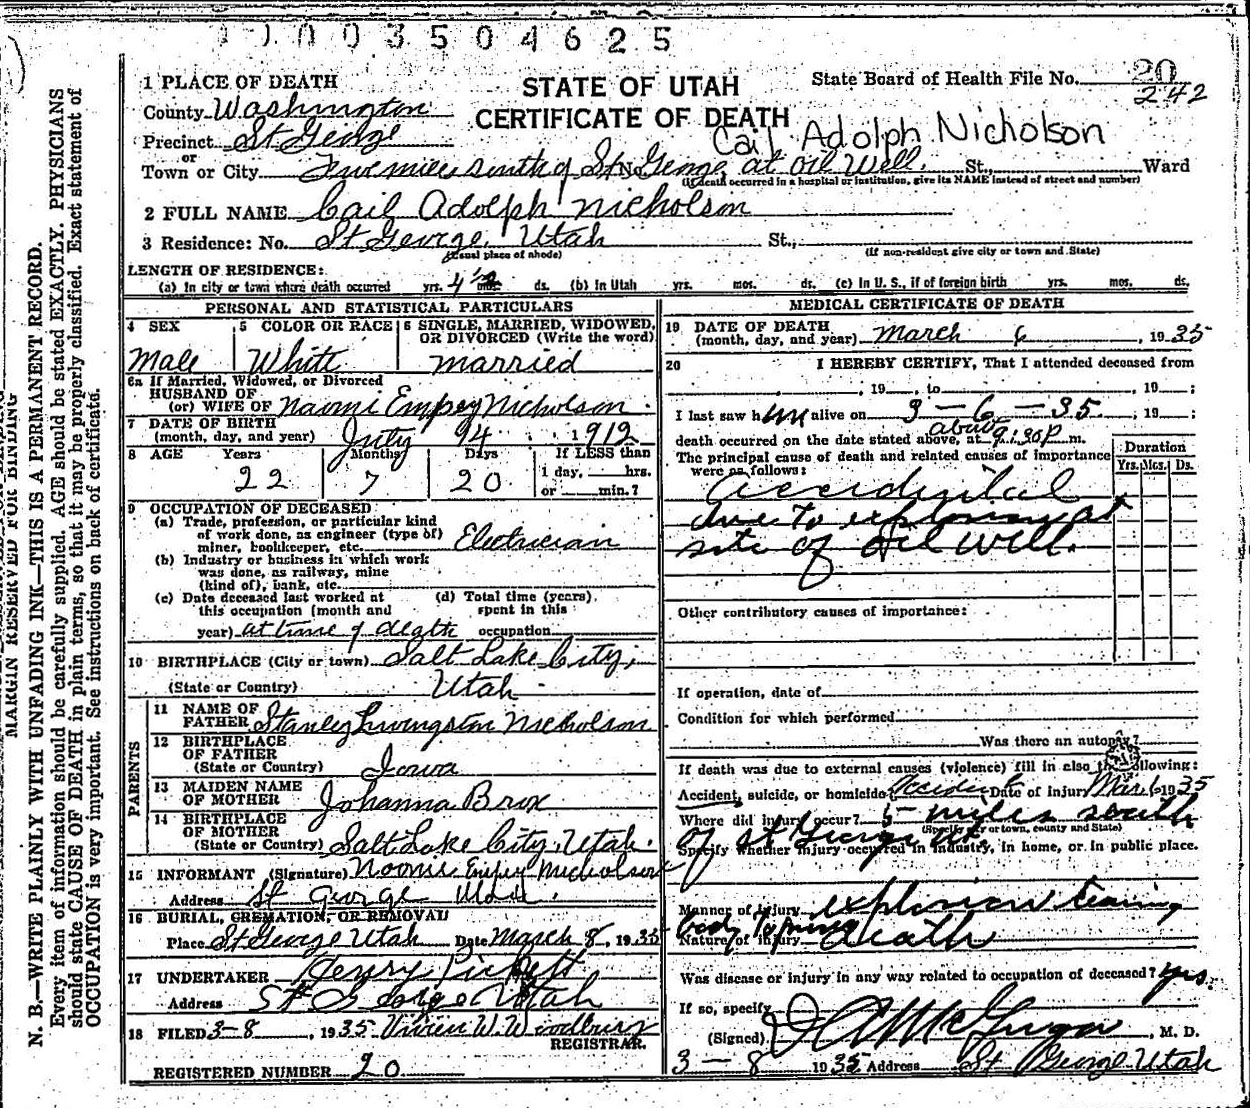 1 1 0 0 3 5 0 4 6 2 5
1 PLACE OF DEATH
County Washington
Precinct St George
or
Town or City Five miles south of St George, at Oil Well. No. St., Ward
(If death occurred in a hospital or institution, give its NAME instead of street and number)
STATE OF UTAH
CERTIFICATE OF DEATH
State Board of Health File No. 20
242
Cail Adolph Nicholson
2 FULL NAME Cail Adolph Nicholson
3 Residence: No. St George, Utah St.,
(Usual place of abode) (If non-resident give city or town and State)
LENGTH OF RESIDENCE:
(a) In city or town where death occurred yrs. 4 1/2 mos. ds. (b) In Utah yrs. mos. ds. (c) In U. S., if of foreign birth yrs. mos. ds.
PERSONAL AND STATISTICAL PARTICULARS
4 SEX
Male
5 COLOR OR RACE
White
6 SINGLE, MARRIED, WIDOWED,
OR DIVORCED (Write the word)
married
6a If Married, Widowed, or Divorced
HUSBAND OF
(or) WIFE OF Naomi Empey Nicholson
7 DATE OF BIRTH
(month, day, and year) July 14 1912
8 AGE Years Months Days If LESS than
22 7 20 1 day, hrs.
or min.?
9 OCCUPATION OF DECEASED
(a) Trade, profession, or particular kind
of work done, as engineer (type of)
miner, bookkeeper, etc. Electrician
(b) Industry or business in which work
was done, as railway, mine
(kind of), bank, etc.
(c) Date deceased last worked at (d) Total time (years)
this occupation (month and spent in this
year) at time of death occupation
10 BIRTHPLACE (City or town) Salt Lake City,
(State or Country) Utah
PARENTS
11 NAME OF
FATHER Stanley Livingston Nicholson
12 BIRTHPLACE
OF FATHER
(State or Country) Iowa
13 MAIDEN NAME
OF MOTHER Johanna Brox
14 BIRTHPLACE
OF MOTHER
(State or Country) Salt Lake City, Utah.
15 INFORMANT (Signature) Naomi Empey Nicholson
Address St George Utah.
16 BURIAL, CREMATION, OR REMOVAL
Place St George Utah Date March 8, 1935
17 UNDERTAKER Henry Pickett
Address St George Utah
18 FILED 3-8, 1935 Vivien W. Woodbury
REGISTRAR.
REGISTERED NUMBER 20
MEDICAL CERTIFICATE OF DEATH
19 DATE OF DEATH
(month, day, and year) March 6, 1935
20 I HEREBY CERTIFY, That I attended deceased from
, 19 , to , 19 ;
I last saw him alive on 3-6-35. , 19 ;
about
death occurred on the date stated above, at 9:30 p m.
The principal cause of death and related causes of importance
were as follows:
Duration
Yrs. Mos. Ds.
Accidental
due to explosion at
site of Oil Well.
Other contributory causes of importance:
If operation, date of
Condition for which performed
Was there an autopsy?
If death was due to external causes (violence) fill in also the following:
Accident, suicide, or homicide? Accident Date of injury Mar 6 1935
Where did injury occur? 5 miles south
(Specify city or town, county and State)
of St George
Specify whether injury occurred in industry, in home, or in public place.
Manner of injury explosion tearing
body
Nature of injury death
Was disease or injury in any way related to occupation of deceased? yes.
If so, specify
(Signed) McGregor, M. D.
3-8 1935 Address St George Utah
MARGIN RESERVED FOR BINDING
N. B.—WRITE PLAINLY WITH UNFADING INK—THIS IS A PERMANENT RECORD.
Every item of information should be carefully supplied. AGE should be stated EXACTLY. PHYSICIANS
should state CAUSE OF DEATH in plain terms, so that it may be properly classified. Exact statement of
OCCUPATION is very important. See instructions on back of certificate.